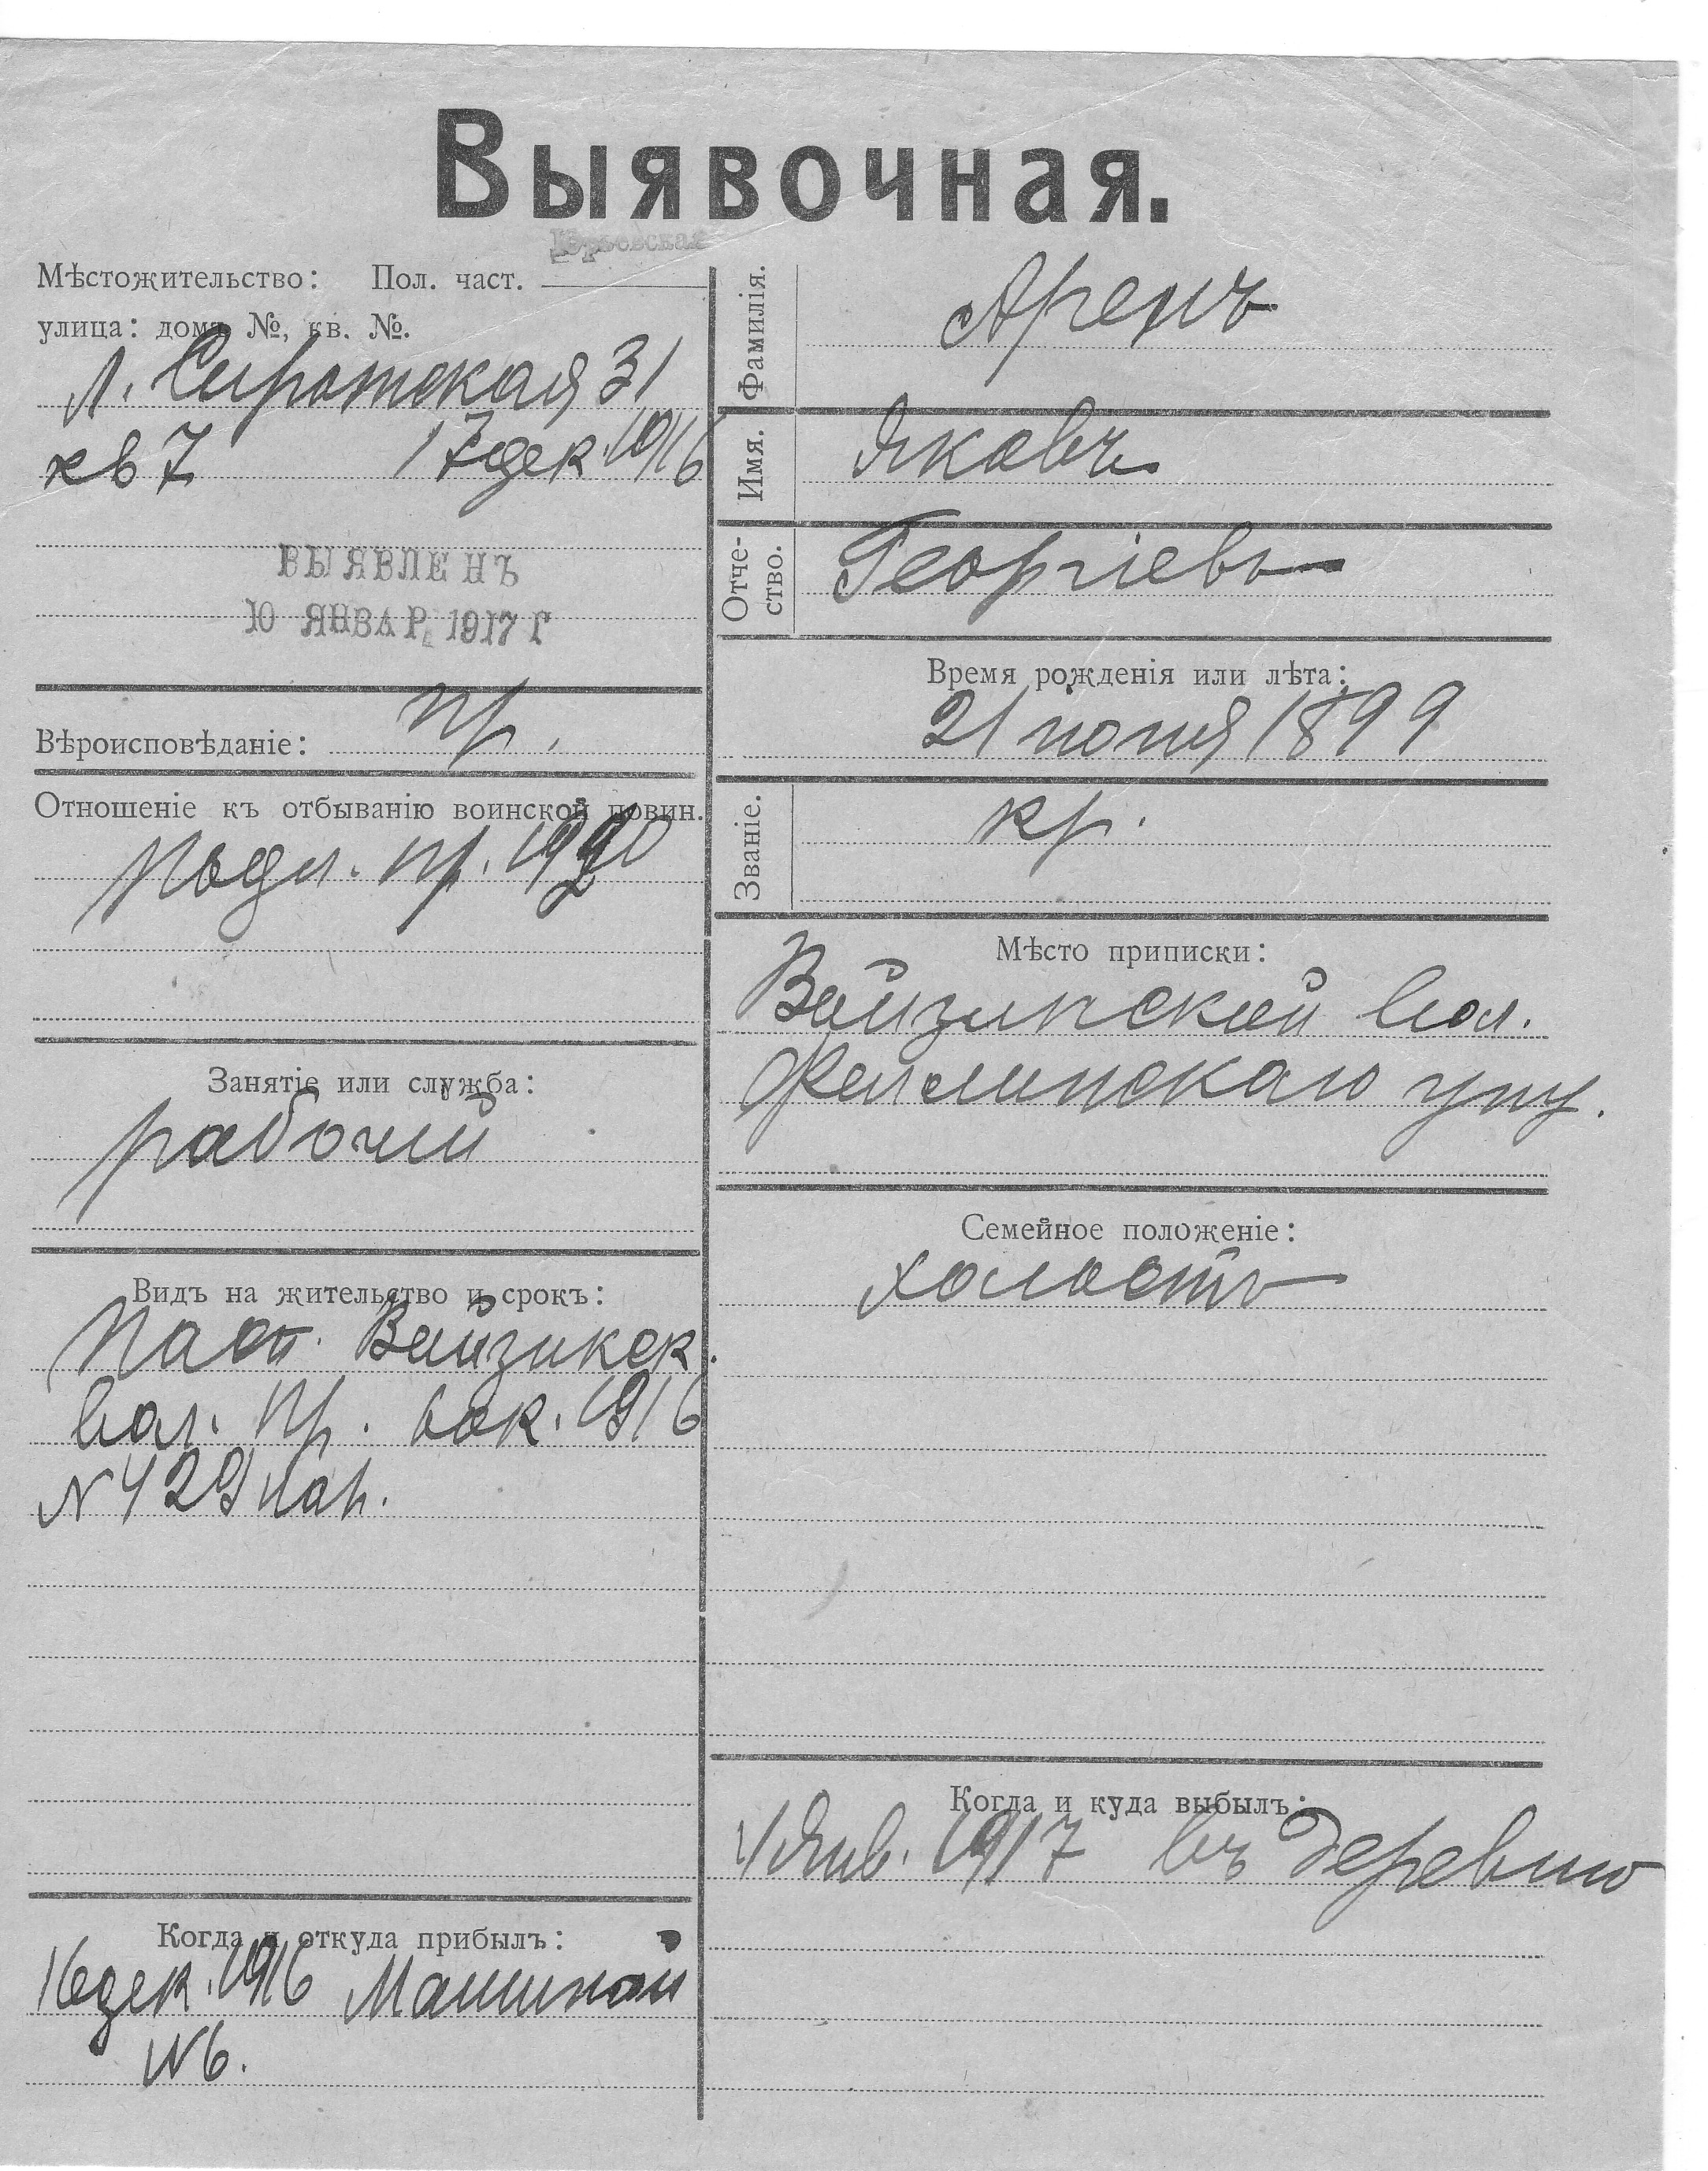 Выявочная.
Юрьевская
Мѣстожительство: Пол. част.
улица: домъ №, кв. №.
Л. Сиротская 31
кв 7 17 дек. 1916
ВЫЯВЛЕНЪ
10 ЯНВАР. 1917 Г
Вѣроисповѣданіе: пр.
Отношеніе къ отбыванію воинской повин.
подл. пр. 1920
Занятіе или служба:
рабочій
Видъ на жительство и срокъ:
Пасп. Вейзикск.
вол. пр. 1916
N 429
Когда и откуда прибылъ:
16 дек. 1916 Машиной
N 6.
Фамилія. Аренъ
Имя. Яковъ
Отче-
ство. Георгіевъ
Время рожденія или лѣта:
21 1899
Званіе. кр.
Мѣсто приписки:
вол.
Феллинскаго
Семейное положеніе:
холостъ
Когда и куда выбылъ:
4 Янв. 1917 въ деревню